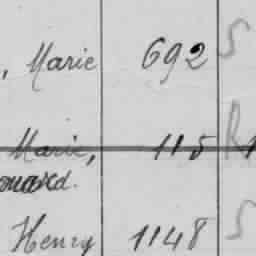 , Marie 692 S
Marie, 115 R
ouard.
Henry 1148 S